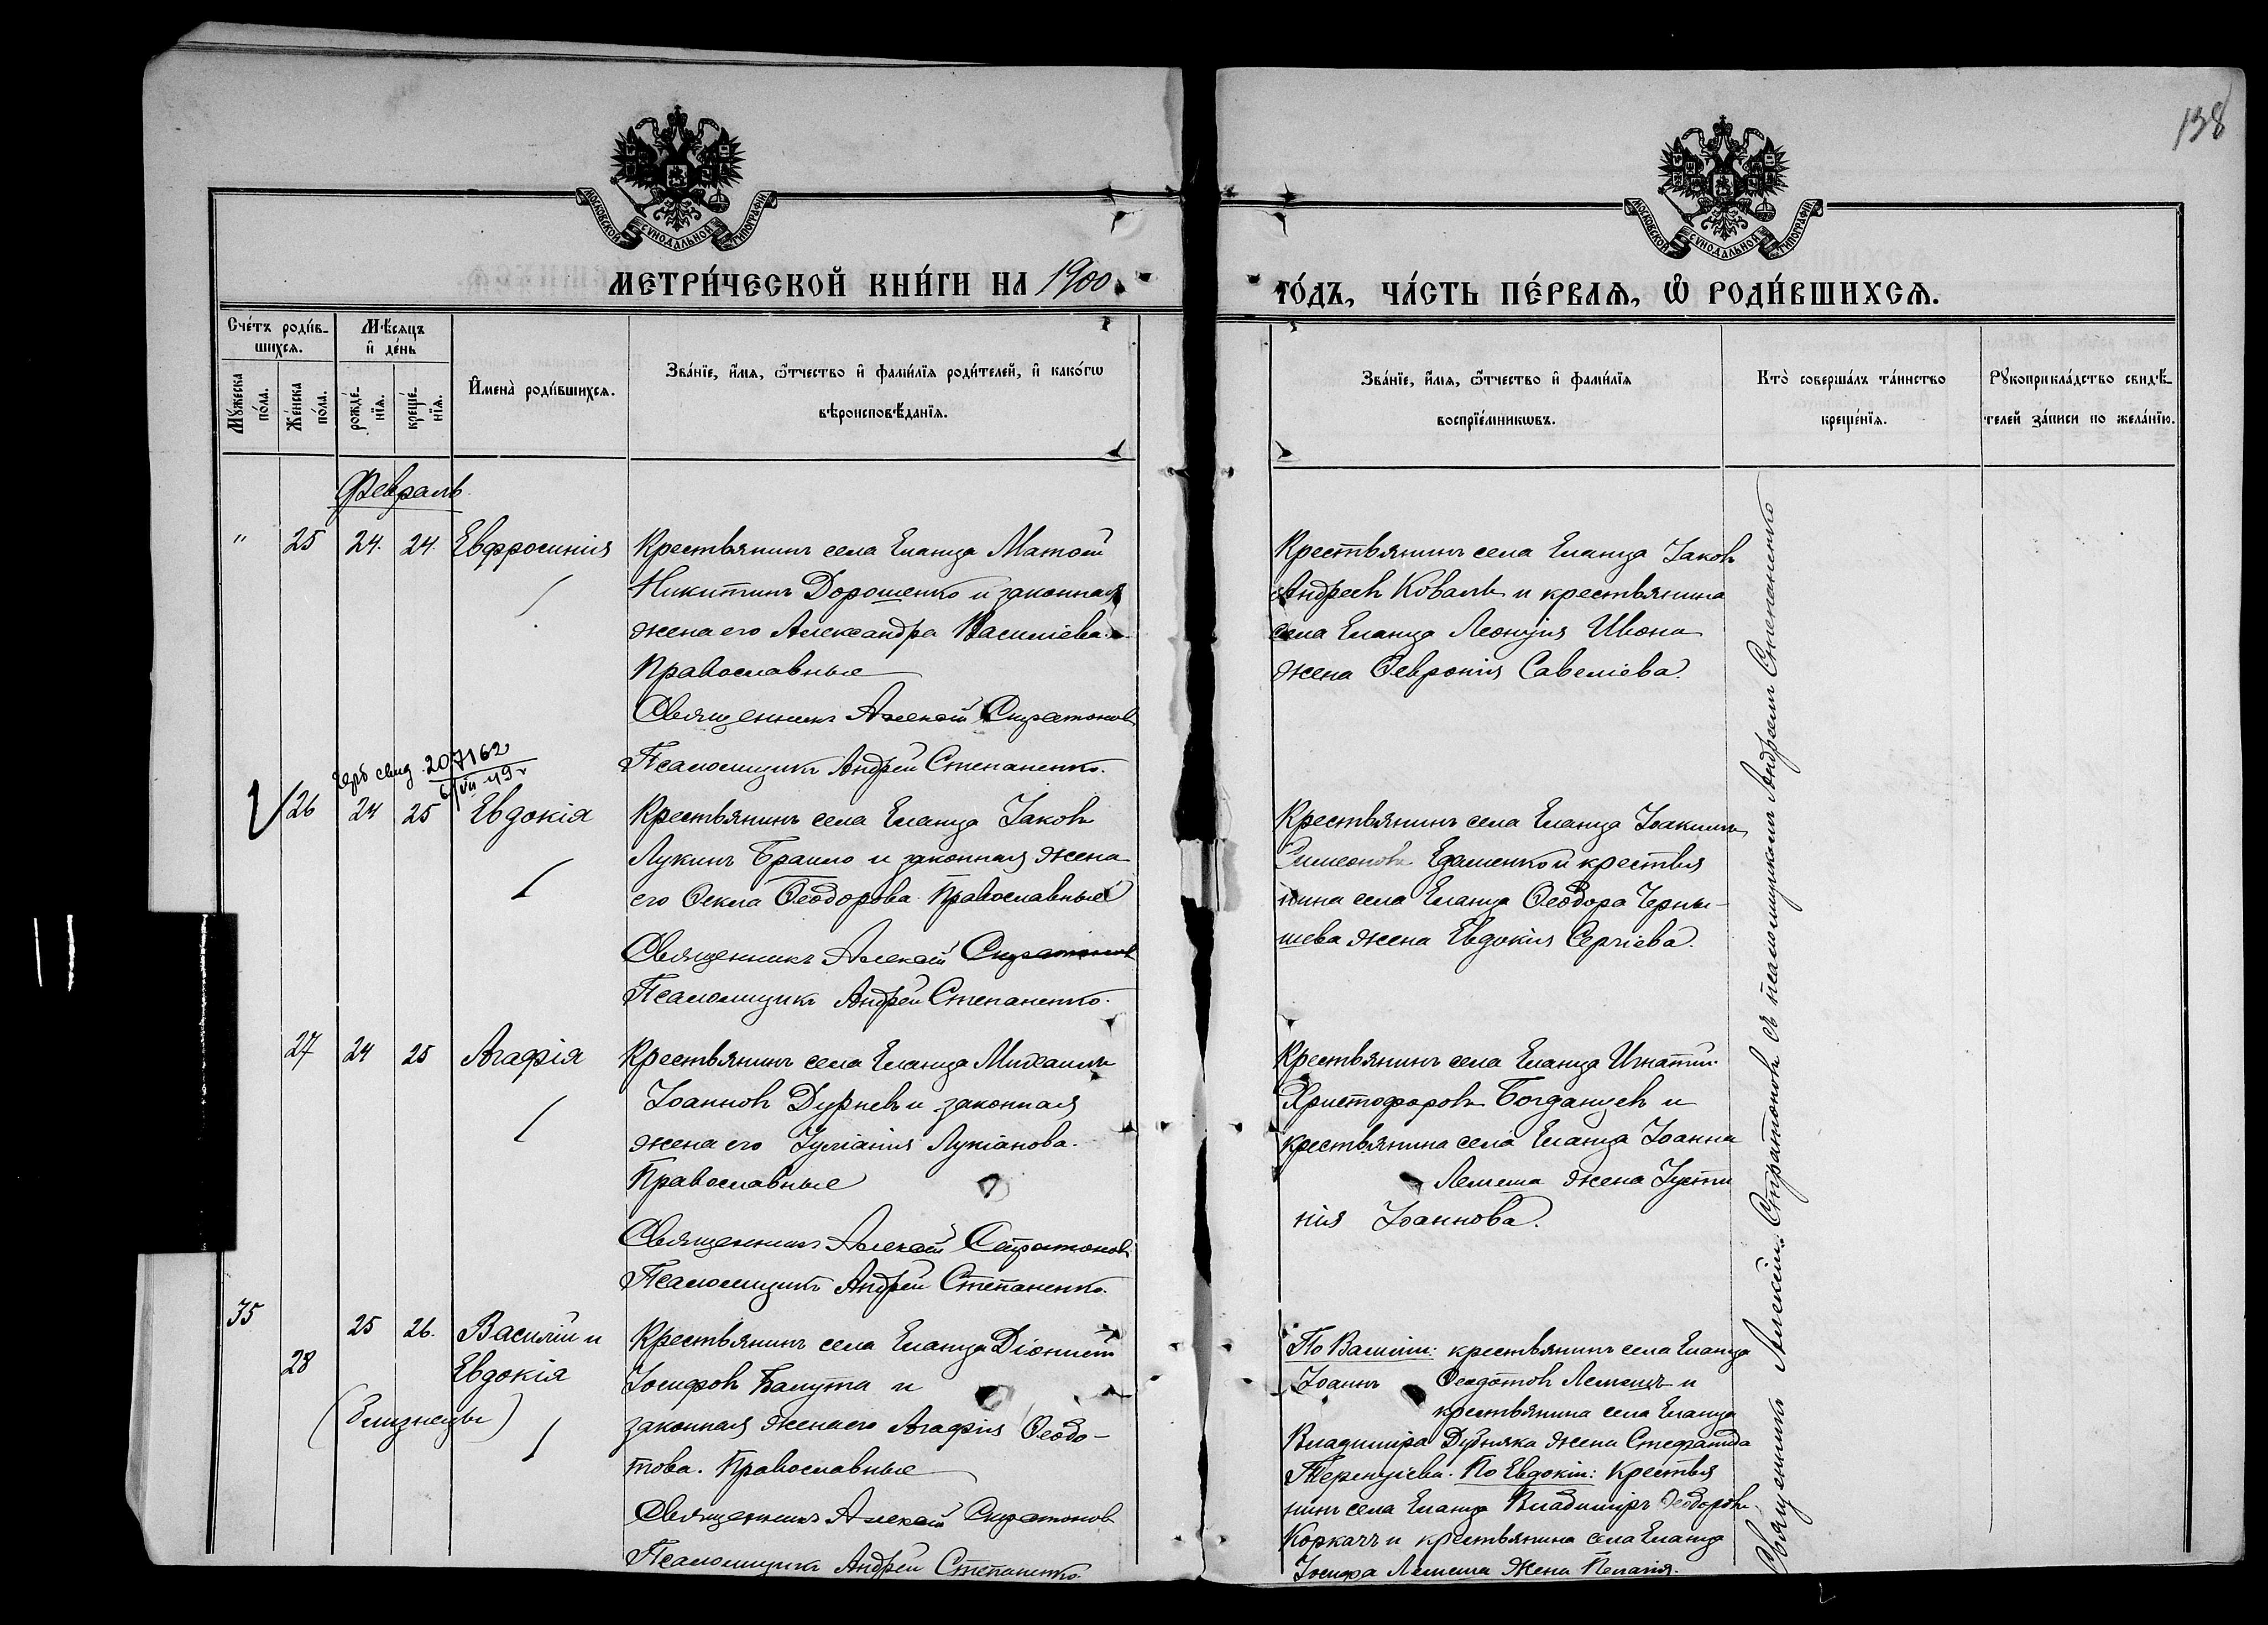 138
МОСКОВСКОЙ СѴНОДАЛЬНОЙ ТИПОГРАФІИ
МОСКОВСКОЙ СѴНОДАЛЬНОЙ ТИПОГРАФІИ
МЕТРИ́ЧЕСКОЙ КНИ́ГИ НА 1900
ГО́ДЪ, ЧА́СТЬ ПЕ́РВАѦ, Ѡ҆ РОДИ́ВШИХСѦ.
Сче́тъ роди́в-
шихсѧ.
Мꙋ́жеска по́ла.
Же́нска по́ла.
Мѣ́сѧцъ
и҆ де́нь
рожде́-
нїѧ.
креще́-
нїѧ.
И҆мена̀ роди́вшихсѧ.
Зва́нїе, и҆́мѧ, ѻ҆́тчество и҆ фами́лїѧ роди́телей, и҆ како́гѡ
вѣроисповѣ́данїѧ.
Зва́нїе, и҆́мѧ, ѻ҆́тчество и҆ фами́лїѧ
воспрїе́мникѡвъ.
Кто̀ соверша́лъ та́инство
креще́нїѧ.
Рꙋкоприкла́дство свидѣ́-
телей за́писи по жела́нїю.
Февраль.
" 25 24. 24. Евфросинія
Крестьянинъ села Еланца Матѳій
Никитинъ Дорошенко и законная
жена его Александра Василіева.
Православные
Священникъ Алексій Стратоновъ
Псаломщикъ Андрей Степаненко.
Крестьянинъ села Еланца Іаковъ
Андреевъ Коваль и крестьянина
села Еланца Леонтія Ивона
жена Ѳевронія Савеліева.
свид. 207162
6/VII 49 г
26 24 25 Евдокія
Крестьянинъ села Еланца Іаковъ
Лукинъ Браило и законная жена
его Ѳекла Ѳеодорова. Православные
Священникъ Алексій Стратоновъ
Псаломщикъ Андрей Степаненко.
Крестьянинъ села Еланца Іоакимъ
Симеоновъ и крестья
нина села Еланца Ѳеодора Черны-
шева жена Евдокія Сергіева.
27 24 25 Агафія
Крестьянинъ села Еланца Михаилъ
Іоанновъ Дурневъ и законная
жена его Іуліанія Лукіанова.
Православные
Священникъ Алексій Стратоновъ
Псаломщикъ Андрей Степаненко.
Крестьянинъ села Еланца Игнатій
Христофоровъ Богданцевъ и
крестьянина села Еланца Іоанна
Лемеша жена Іусти
нія Іоаннова.
35 25 26. Василій и
28 Евдокія
(близнецы)
Крестьянинъ села Еланца Діонисій
Іосифовъ Балута и
законная жена его Агафія Ѳеодо-
това. Православные
Священникъ Алексій Стратоновъ
Псаломщикъ Андрей Степаненко.
По Василіи: крестьянинъ села Еланца
Іоаннъ Ѳеодотовъ Лемешъ и
крестьянина села Еланца
Владиміра Дубняка жена Стефанида
Терентіева. По Евдокіи: Крестья
нинъ села Еланца Владиміръ Ѳеодоровъ
Коркачъ и крестьянина села Еланца
Іосифа Лемеша жена Пелагія.
Священникъ Алексій Стратоновъ съ псаломщикомъ Андреемъ Степаненко